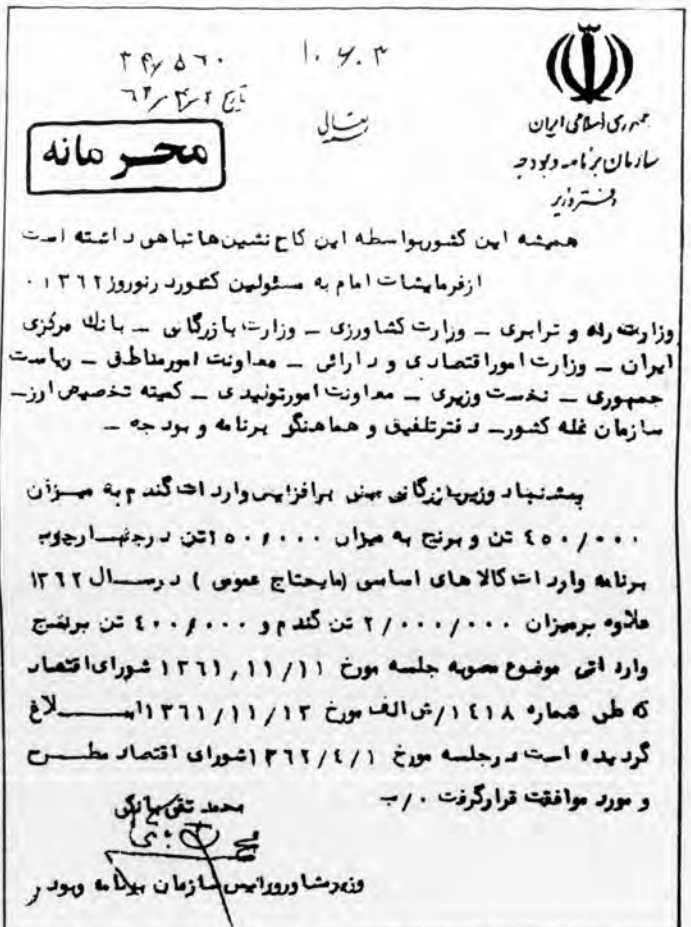 ۱۰۶۰۳
۳۴/۵۶۰
تاریخ ۶۲/۴/۲
بسمه تعالی
محرمانه
جمهوری اسلامی ایران
سازمان برنامه و بودجه
دفتر وزیر
همیشه این کشور بواسطه این کاخ نشین‌ها تباهی داشته است
ازفرمایشات امام به مسئولین کشور در نوروز ۱۳۶۲ .
وزارت راه و ترابری ـ وزارت کشاورزی ـ وزارت بازرگانی ـ بانک مرکزی
ایران ـ وزارت اموراقتصادی و دارائی ـ معاونت امورمناطق ـ ریاست
جمهوری ـ نخست وزیری ـ معاونت امورتولیدی ـ کمیته تخصیص ارز ـ
سازمان غله کشور ـ دفترتلفیق و هماهنگی برنامه و بودجه ـ
پیشنهاد وزیربازرگانی مبنی برافزایش واردات گندم به میـزان
۴۵۰/۰۰۰ تن و برنج به میزان ۱۵۰/۰۰۰ تن درچهـارچوب
برنامه واردات کالاهای اساسی (مایحتاج عمومی ) درســال ۱۳۶۲
علاوه برمیزان ۲/۰۰۰/۰۰۰ تن گندم و ۴۰۰/۰۰۰ تن برنـج
وارداتی موضوع مصوبه جلسه مورخ ۱۳۶۱/۱۱/۱۱ شورای اقتصاد
که طی شماره ۱۴۱۸/ش الف مورخ ۱۳۶۱/۱۱/۱۳ ابــــلاغ
گردیده است درجلسه مورخ ۱۳۶۲/۴/۱ شورای اقتصاد مطـــرح
و مورد موافقت قرارگرفت ./ب
محمد تقی بانکی
وزیرمشاور ورئیس سازمان برنامه وبودجه